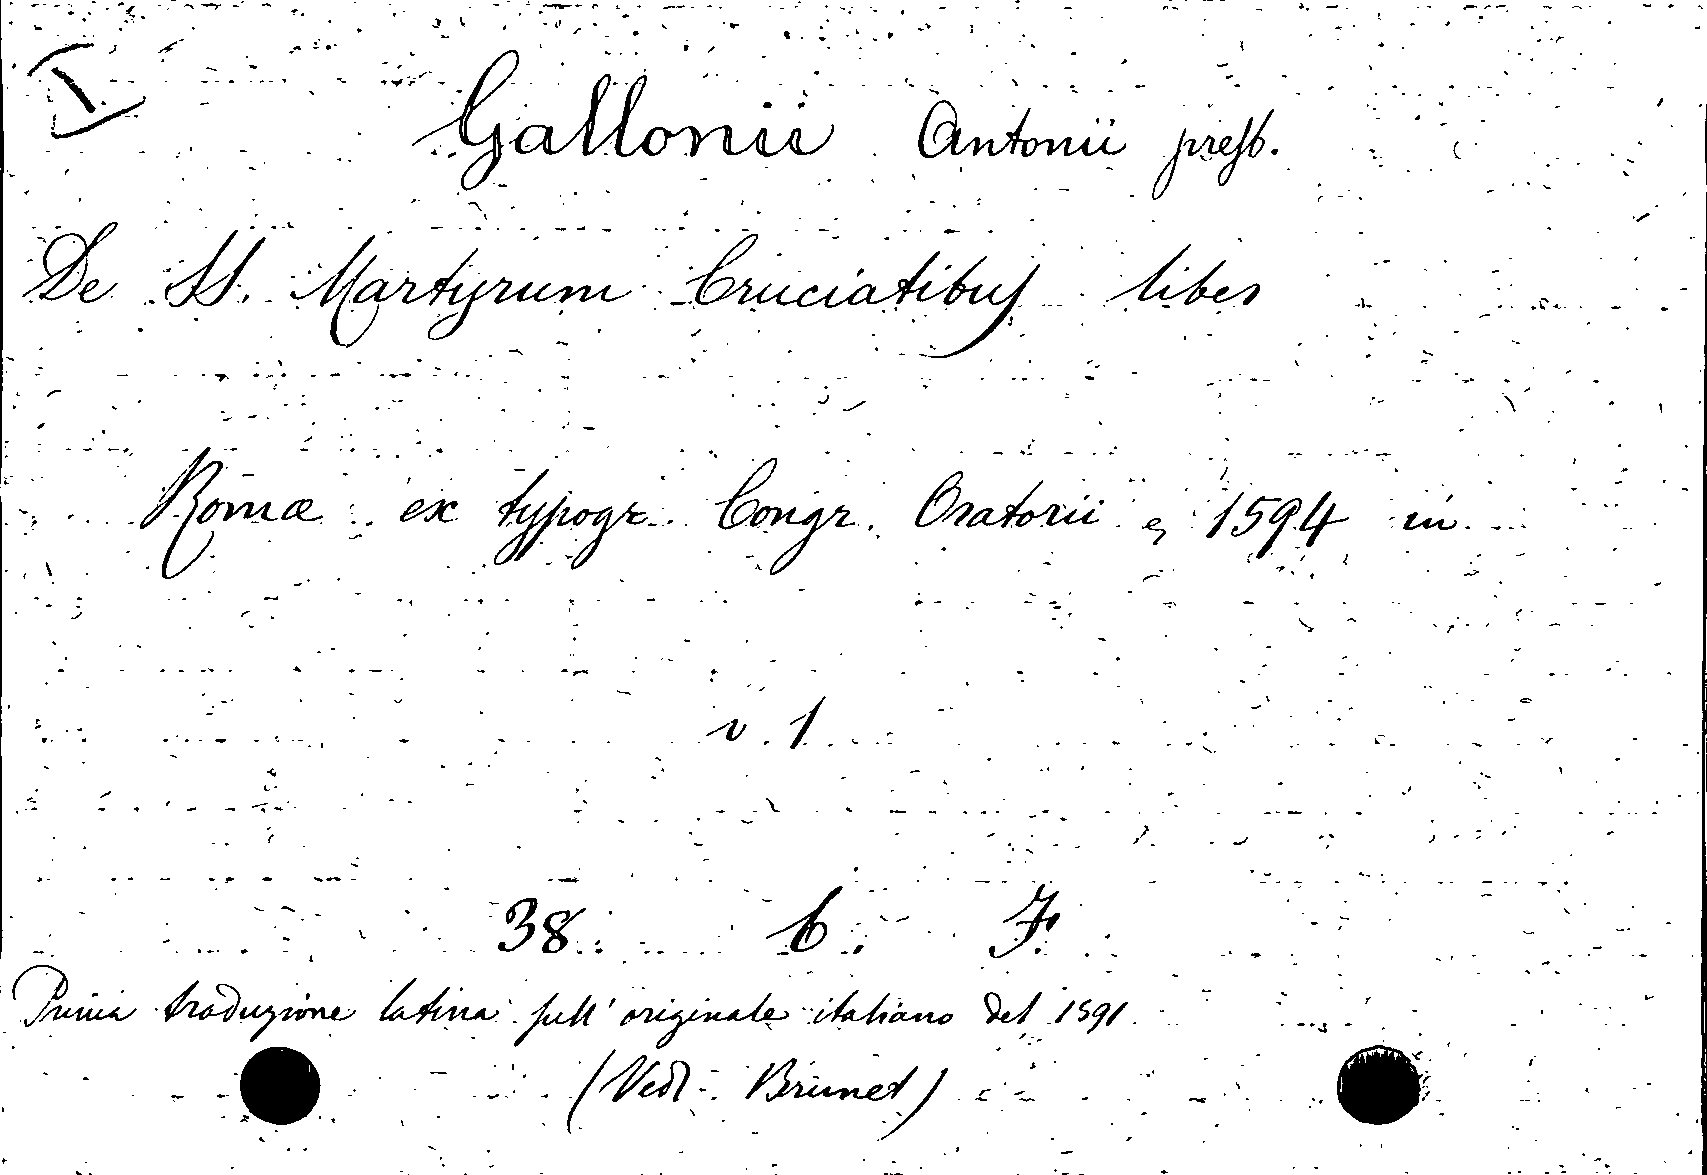 I
Gallonii Antonii presb.
De SS. Martyrum Cruciatibus liber
Romæ ex typogr. Congr. Oratorii, 1594 in
v. 1
38. 6. F.
Prima traduzione latina sull' originale italiano del 1591
(Ved. Brunet)